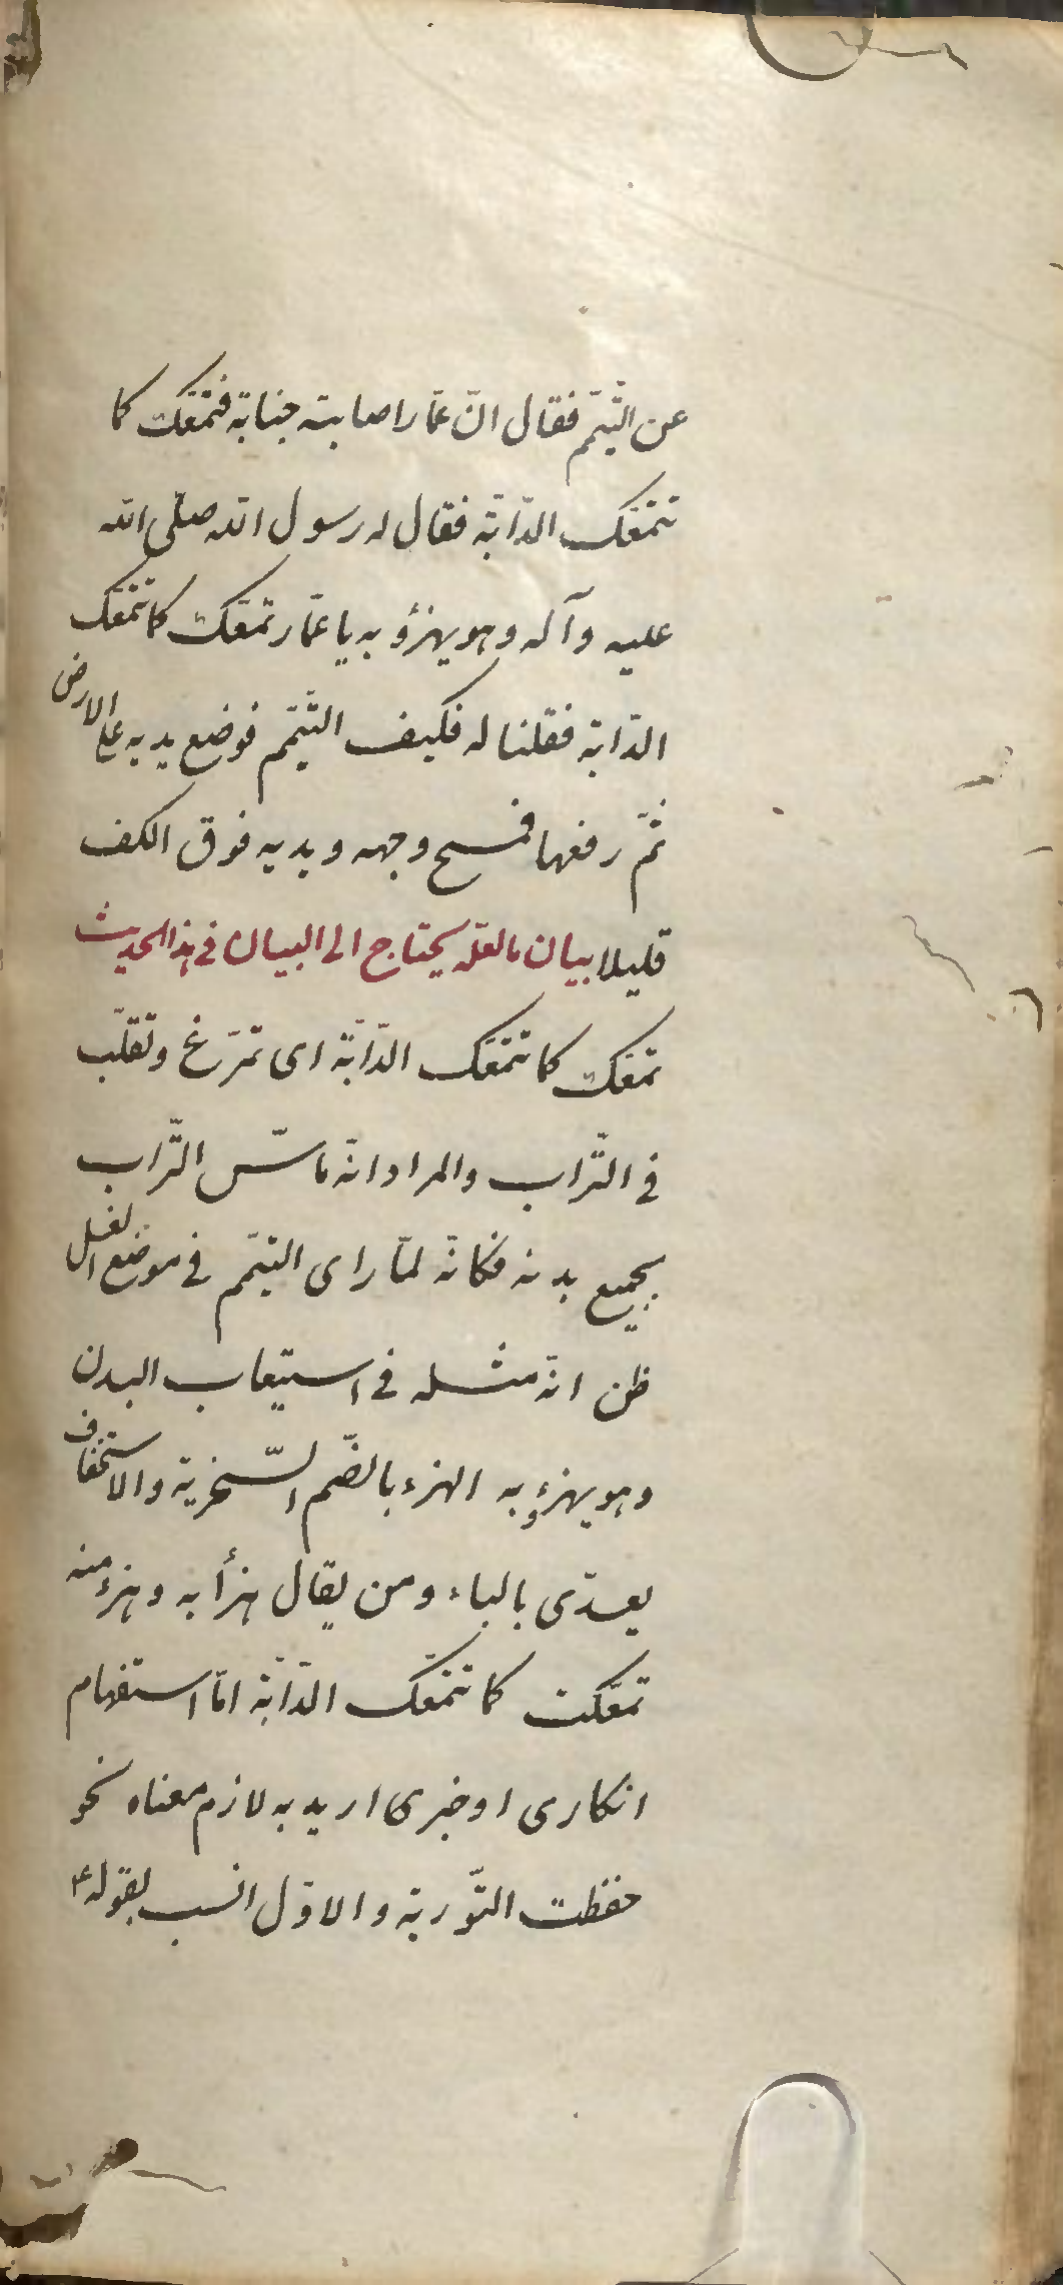 عن التيمّم فقال انّ عمّارا صابته جنابة فتمعّكت كما
تتمعّك الدّابّة فقال له رسول الله صلّى الله
عليه وآله وهو يهزؤ به يا عمّار تمعّكت كما تتمعّك
الدّابّة فقلنا له فكيف التيمّم فوضع يديه على الارض
ثمّ رفعها فمسح وجهه ويديه فوق الكف
قليلا بيان ما لعلّه يحتاج الى البيان في هذا الحديث
تمعكت كما تتمعّك الدّابّة اى تمرّغ وتقلّب
في التّراب والمراد انّه ماسّ التّراب
بجميع بدنه فكانّه لمّا راى التيمّم في موضع الغسل
ظن انّه مثله في استيعاب البدن
وهو يهزؤ به الهزء بالضّم السّخرية والاستخفاف
يعدّى بالباء ومن يقال هزأ به وهزء منه
تمعّكت كما تتمعّك الدّابّة امّا استفهام
انكارى او خبرى اريد به لازم معناه نحو
حفظت التّورية والاوّل انسب بقوله ع